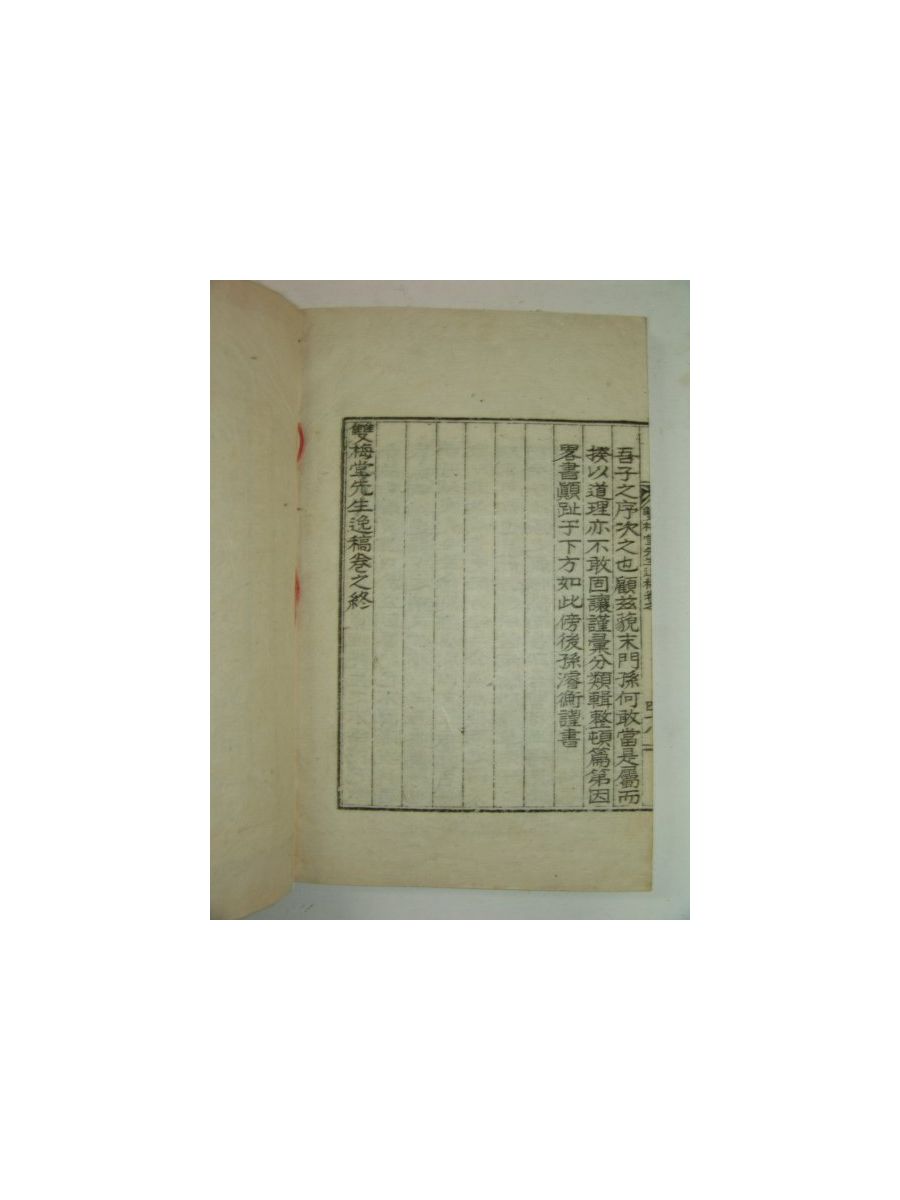 雙梅堂先生逸稿卷之
四十八
吾子之序次之也顧玆藐末門孫何敢當是屬而
揆以道理亦不敢固讓謹彙分類輯整頓篇第因
畧書顚趾于下方如此傍後孫濬衡謹書
雙梅堂先生逸稿卷之終